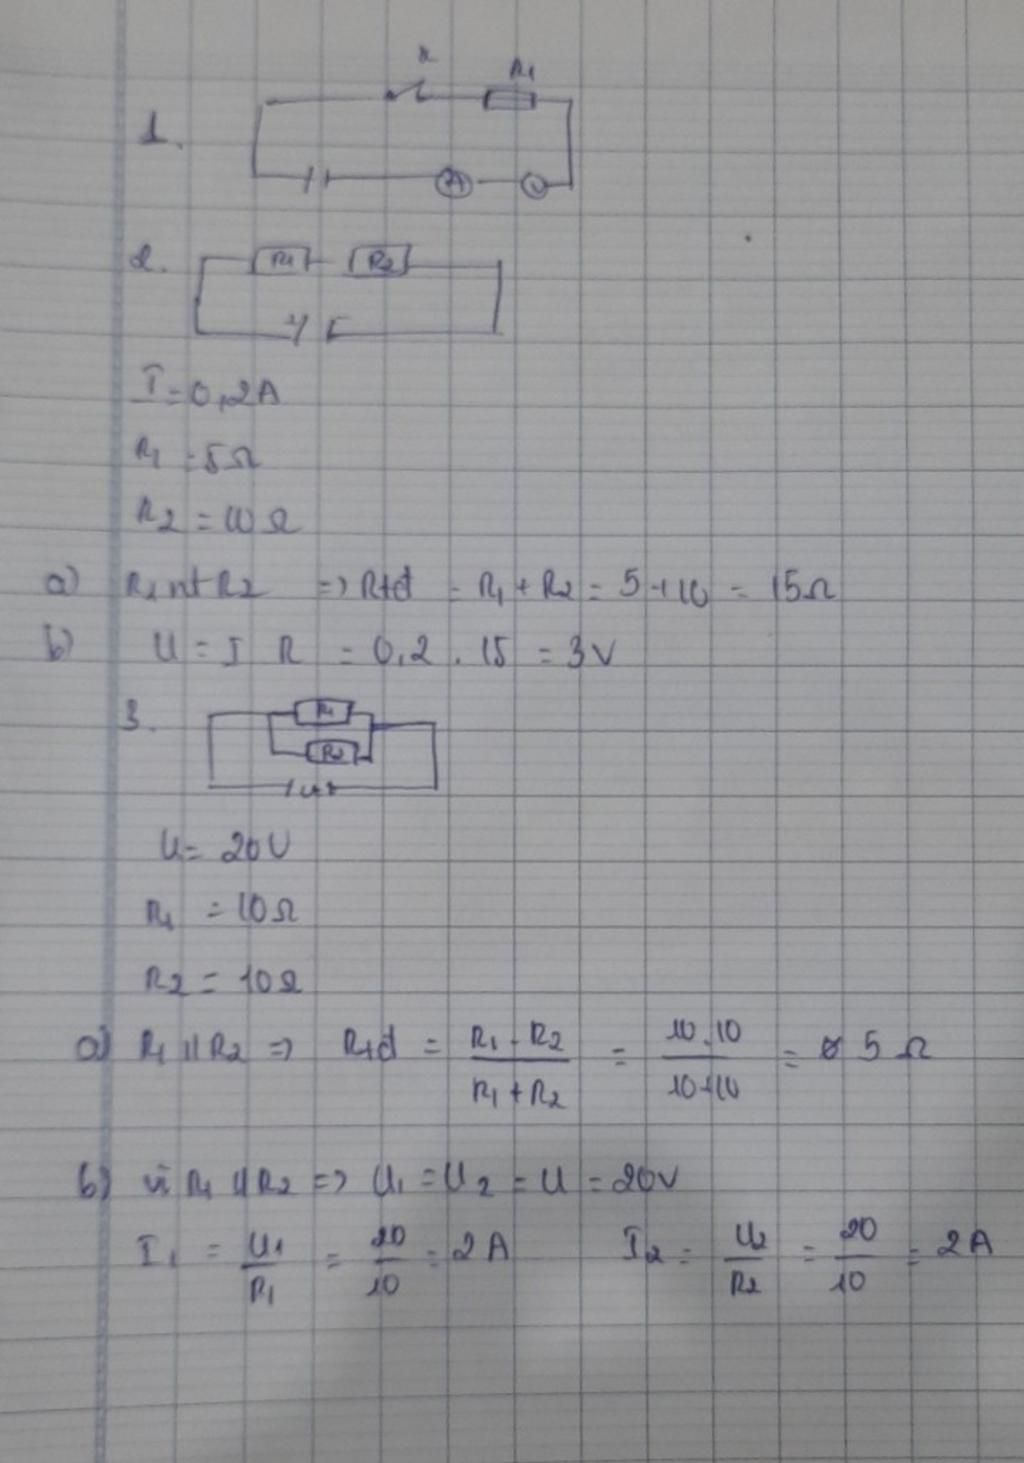 K R1
1.
A V
2. R1 R2
I = 0,2A
R1 = 5Ω
R2 = 10Ω
a) R1 nt R2 => Rtđ = R1 + R2 = 5 + 10 = 15Ω
b) U = I R = 0,2 . 15 = 3V
3. R1
R2
U
U = 20V
R1 = 10Ω
R2 = 10Ω
a) R1 // R2 => Rtđ = R1 . R2 / R1 + R2 = 10.10 / 10+10 = 5 Ω
b) vì R1 // R2 => U1 = U2 = U = 20V
I1 = U1 / R1 = 20 / 10 = 2A I2 = U2 / R2 = 20 / 10 = 2A